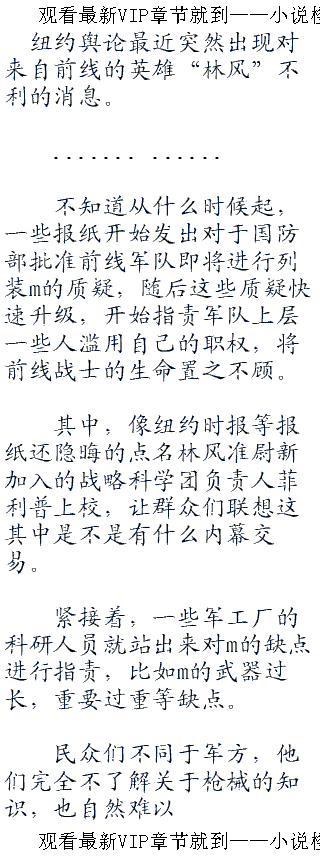 观看最新VIP章节就到——小说
纽约舆论最近突然出现对
来自前线的英雄“林风”不
利的消息。
······· ······
不知道从什么时候起，
一些报纸开始发出对于国防
部批准前线军队即将进行列
装m的质疑，随后这些质疑快
速升级，开始指责军队上层
一些人滥用自己的职权，将
前线战士的生命置之不顾。
其中，像纽约时报等报
纸还隐晦的点名林风准尉新
加入的战略科学团负责人菲
利普上校，让群众们联想这
其中是不是有什么内幕交
易。
紧接着，一些军工厂的
科研人员就站出来对m的缺点
进行指责，比如m的武器过
长，重要过重等缺点。
民众们不同于军方，他
们完全不了解关于枪械的知
识，也自然难以
观看最新VIP章节就到——小说